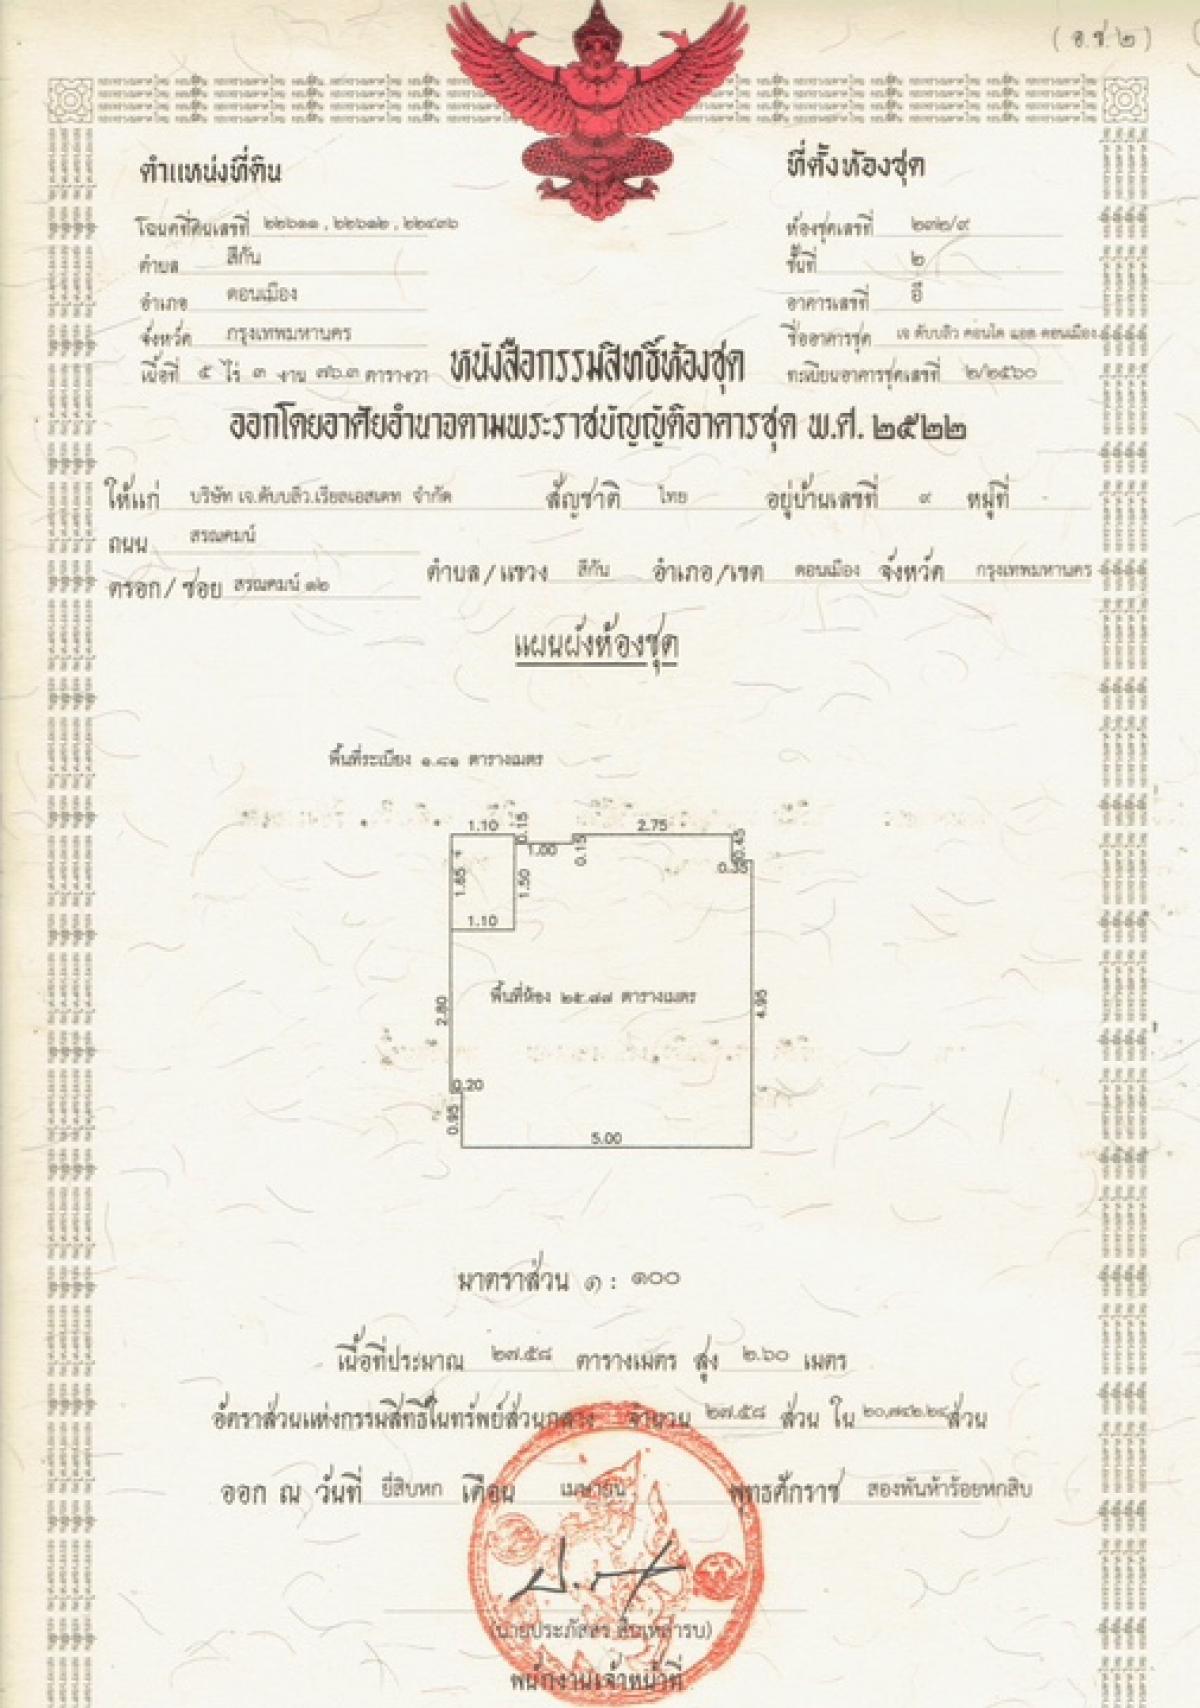 ( อ.ช.๒ )
ตำแหน่งที่ดิน
ที่ตั้งห้องชุด
โฉนดที่ดินเลขที่ ๒๒๖๑๑ , ๒๒๖๑๒ , ๒๒๔๓๖
ห้องชุดเลขที่ ๒๓๒/๙
ตำบล สีกัน
ชั้นที่ ๒
อำเภอ ดอนเมือง
อาคารเลขที่ อี
จังหวัด กรุงเทพมหานคร
ชื่ออาคารชุด เจ ดับบลิว คอนโด แอท ดอนเมือง
เนื้อที่ ๕ ไร่ ๓ งาน ๗๖.๓ ตารางวา
หนังสือกรรมสิทธิ์ห้องชุด
ทะเบียนอาคารชุดเลขที่ ๒/๒๕๖๐
ออกโดยอาศัยอำนาจตามพระราชบัญญัติอาคารชุด พ.ศ. ๒๕๒๒
ให้แก่ บริษัท เจ.ดับบลิว.เรียลเอสเตท จำกัด สัญชาติ ไทย อยู่บ้านเลขที่ ๙ หมู่ที่
ถนน สรณคมน์
ตรอก/ซอย สรณคมน์ ๑๒ ตำบล/แขวง สีกัน อำเภอ/เขต ดอนเมือง จังหวัด กรุงเทพมหานคร
แผนผังห้องชุด
พื้นที่ระเบียง ๑.๘๑ ตารางเมตร
1.10 0.15 2.75 0.45
1.00 0.15 0.35
1.65 1.50
1.10
พื้นที่ห้อง ๒๕.๗๗ ตารางเมตร
2.80 4.95
0.20
0.95
5.00
มาตราส่วน ๑ : ๑๐๐
เนื้อที่ประมาณ ๒๗.๕๘ ตารางเมตร สูง ๒.๖๐ เมตร
อัตราส่วนแห่งกรรมสิทธิ์ในทรัพย์ส่วนกลาง จำนวน ๒๗.๕๘ ส่วน ใน ๒๐,๗๔๒.๒๔ ส่วน
ออก ณ วันที่ ยี่สิบหก เดือน เมษายน พุทธศักราช สองพันห้าร้อยหกสิบ
(นายประภัสสร สืบเหล่ารบ)
พนักงานเจ้าหน้าที่